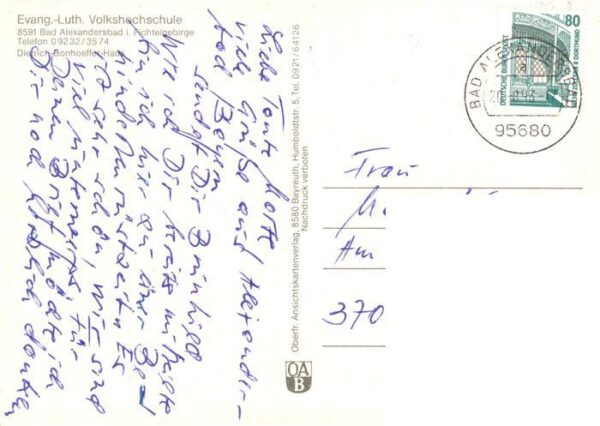 Evang.-Luth. Volkshochschule
8591 Bad Alexandersbad i. Fichtelgebirge
Telefon 09232/3574
Dietrich-Bonhoeffer-Haus
Liebe Tante
viele Grüße aus Alexander-
bad Bayern
sendet Dir Brunhild
Wie ich Dir bereits mitteilte
bin ich hier zu einer Be
hindertenrüstzeit. Es
ist sehr schön, wir sind
viel unterwegs, für
Deinen Brief möchte ich
Dir noch herzlich danken
Oberfr. Ansichtskartenverlag, 8580 Bayreuth, Humboldtstr. 5, Tel. 0921/64126
Nachdruck verboten
OA
B
80
DEUTSCHE BUNDESPOST
ZECHE ZOLLERN II DORTMUND
BAD ALEXANDERSBAD
95680
Frau
M
Am
370